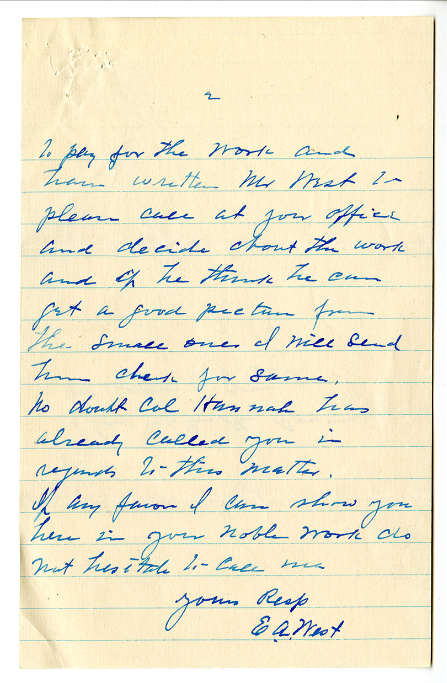 2
to pay for the work and
have written Mr West to
please call at your office
and decide about the work
and if he think he can
get a good picture from
the small ones I will send
him check for same.
No doubt Col Hannah has
already called you in
regards to this matter.
If any favor I can show you
here in your noble work do
not hesitate to call me
yours Resp
E A. West